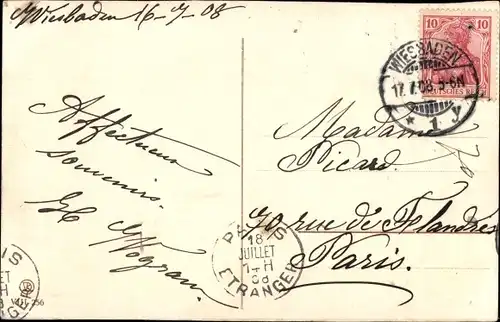 Wiesbaden 16-7-08
10 10
DEUTSCHES REICH
WIESBADEN
17.7.08. 5-6N
* 1 y
Affectueux
souvenirs.
Madame
Picard.
70 rue de Flandres
Paris.
70
PARIS
18
JUILLET
14H
08
ETRANGER
IS
ET
H
8
NGER